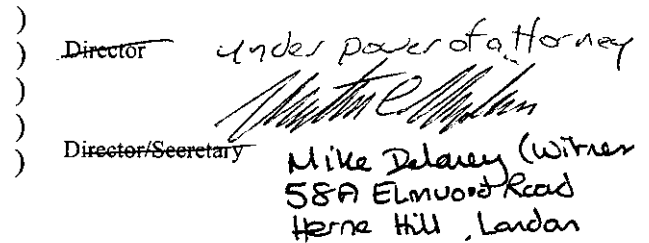 )
) Director under power of attorney
)
)
) Director/Secretary Mike Delaney (Witness
58A Elmwood Road
Herne Hill, London